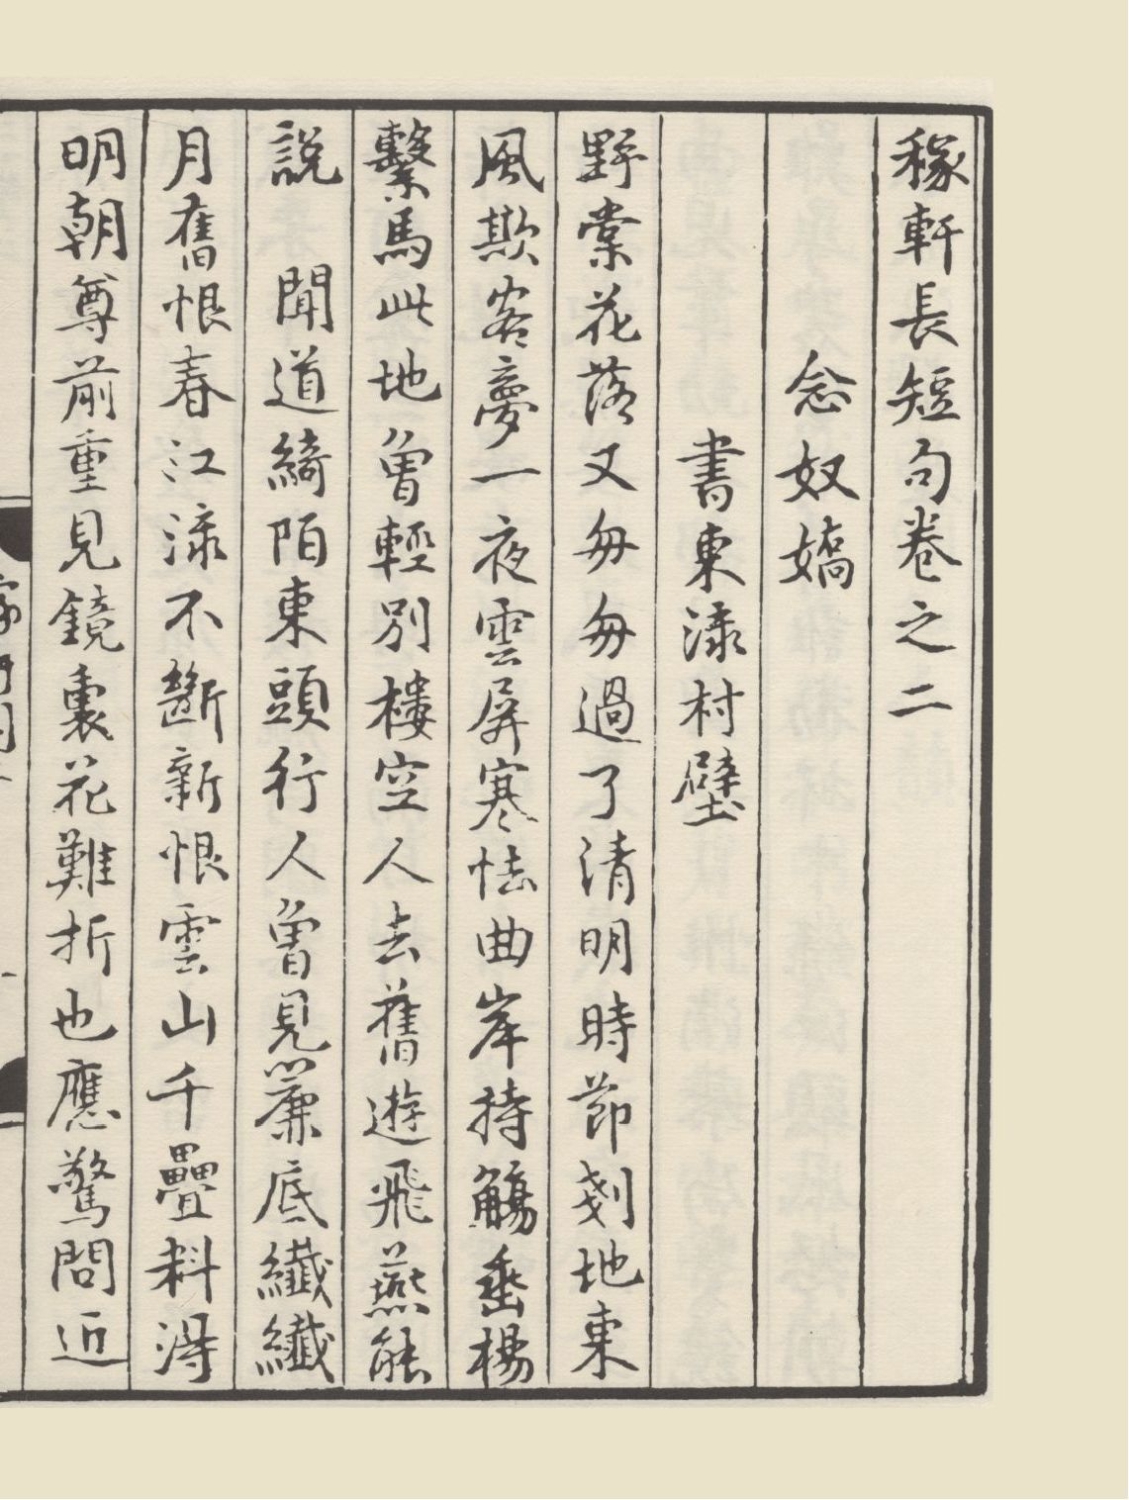 稼軒長短句卷之二
念奴嬌
書東淥村壁
野棠花落又匆匆過了清明時節剗地東
風欺客夢一夜雲屏寒怯曲岸持觴垂楊
繫馬此地曾輕別樓空人去舊遊飛燕能
說 聞道綺陌東頭行人曾見簾底纖纖
月舊恨春江淥不斷新恨雲山千疊料得
明朝尊前重見鏡裏花難折也應驚問近